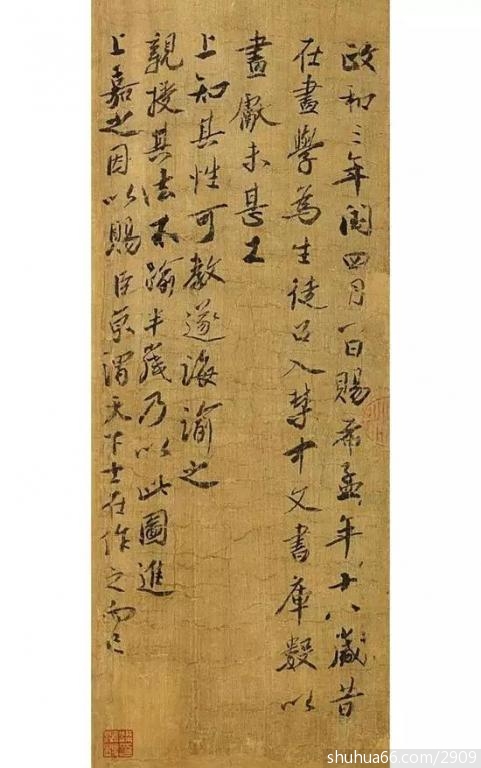 政和三年閏四月一日賜希孟年十八歲昔
在畫學為生徒召入禁中文書庫數以
畫獻未甚工
上知其性可教遂誨諭之
親授其法不踰半歲乃以此圖進
上嘉之因以賜臣京謂天下士在作之而已
shuhua66.com/2909